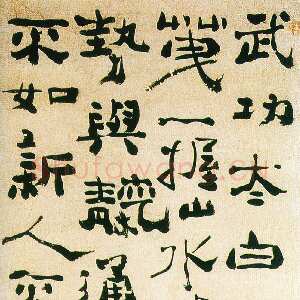 武功太白
一握山水
勢與靝通
不如新人不